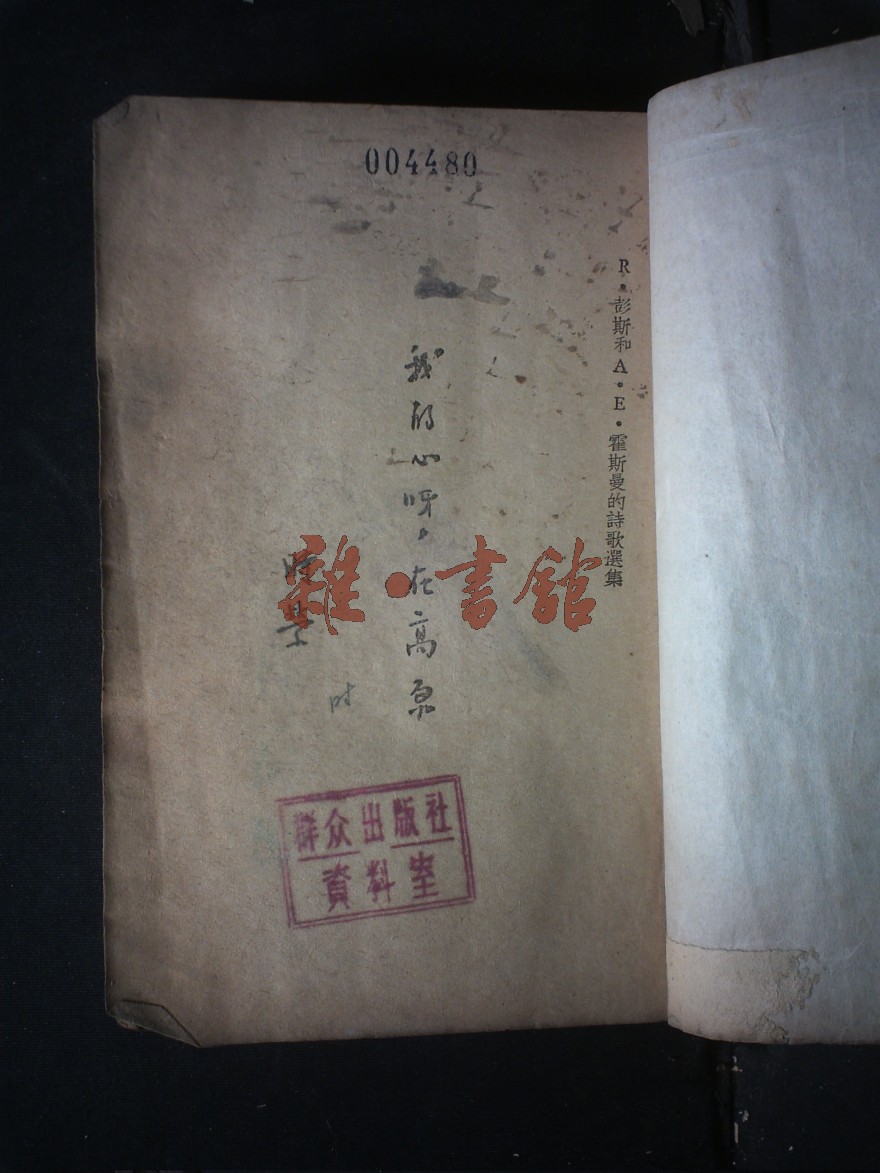 004480
R·彭斯和A·E·霍斯曼的詩歌選集
我的心呀,在高原
雜·書館
群众出版社
資料室